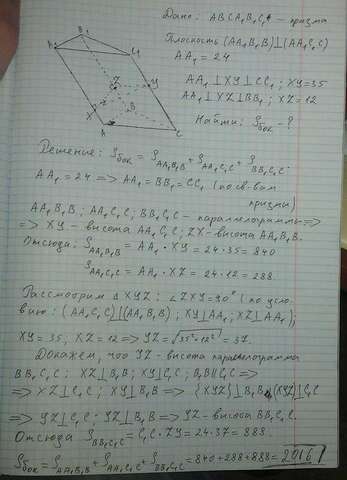 Дано: ABCA₁B₁C₁ - призма
Плоскость (AA₁B₁B) ⊥ (AA₁C₁C)
AA₁ = 24
AA₁ ⊥ XY ⊥ CC₁; XY = 35
AA₁ ⊥ XZ ⊥ BB₁; XZ = 12
Найти: Sбок - ?
A₁ B₁ C₁
Z Y
X B
A C
Решение: Sбок = S AA₁B₁B + S AA₁C₁C + S BB₁C₁C.
AA₁ = 24 => AA₁ = BB₁ = CC₁ (по св-вам
призмы)
AA₁B₁B; AA₁C₁C; BB₁C₁C - параллелограммы =>
=> XY - высота AA₁C₁C; ZX - высота AA₁B₁B.
Отсюда: S AA₁B₁B = AA₁ · XY = 24 · 35 = 840
S AA₁C₁C = AA₁ · XZ = 24 · 12 = 288.
Рассмотрим Δ XYZ: ∠ZXY = 90° (по усло-
вию: (AA₁C₁C) ⊥ (AA₁B₁B); XY ⊥ AA₁; XZ ⊥ AA₁);
XY = 35, XZ = 12 => YZ = √35² + 12² = 37.
Докажем, что YZ - высота параллелограмма
BB₁C₁C: XZ ⊥ B₁B; XY ⊥ C₁C; B₁B || C₁C =>
=> XZ ⊥ C₁C; XY ⊥ B₁B => (XYZ) ⊥ B₁B; (XYZ) ⊥ C₁C
=> YZ ⊥ C₁C; YZ ⊥ B₁B => YZ - высота BB₁C₁C.
Отсюда S BB₁C₁C = C₁C · ZY = 24 · 37 = 888.
Sбок = S AA₁B₁B + S AA₁C₁C + S BB₁C₁C = 840 + 288 + 888 = 2016